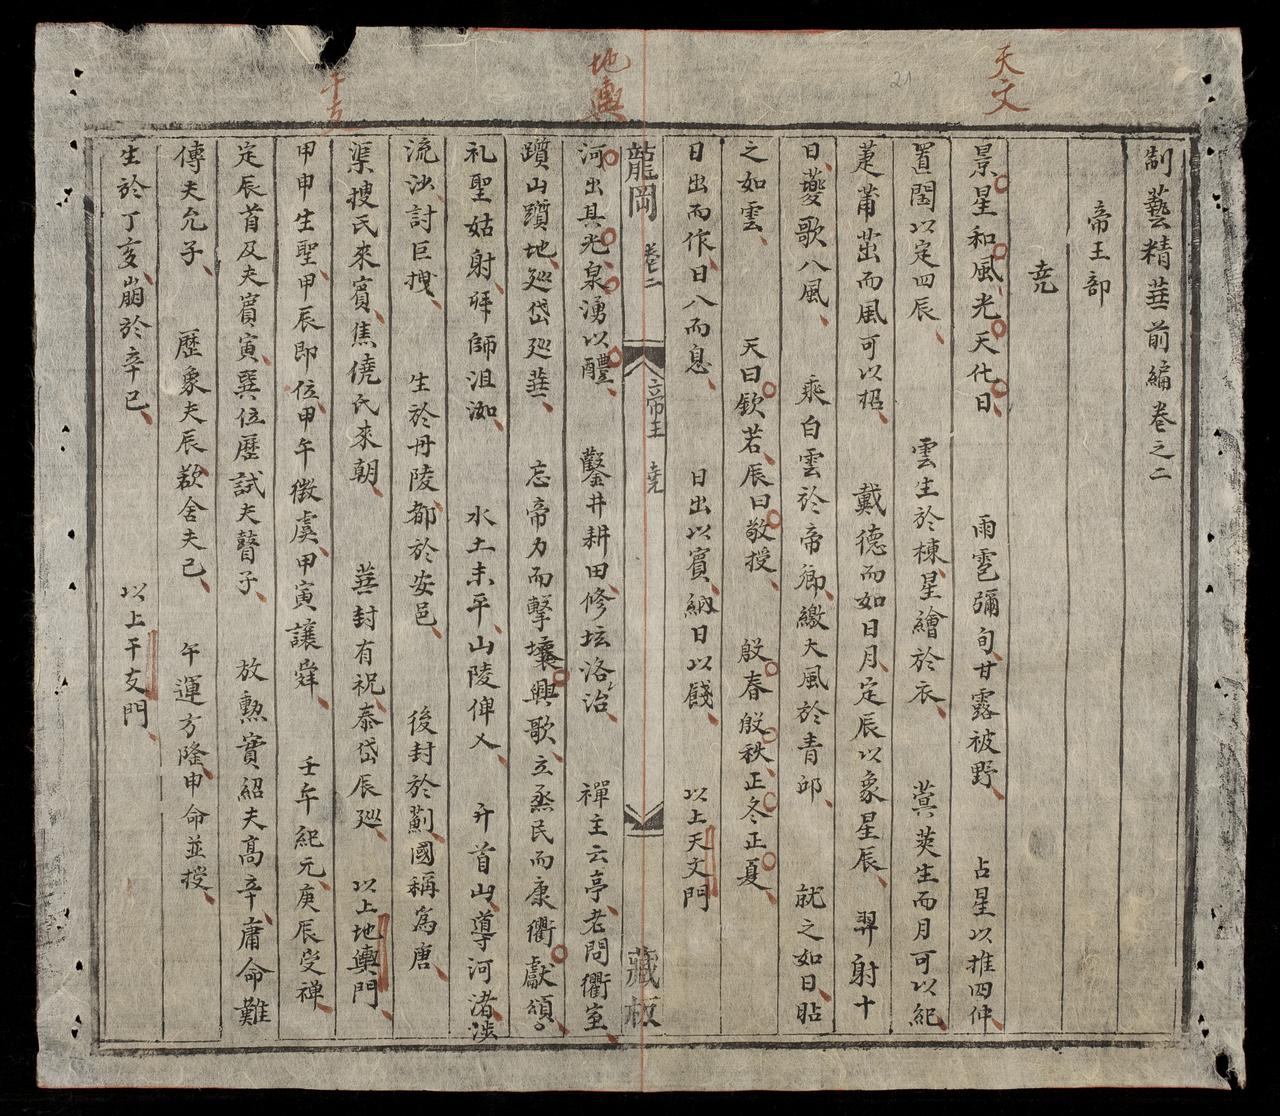 天文
地輿
干支
21
制藝精華前編卷之二
帝王部
堯
景星和風光天化日 雨雹彌旬甘露被野 占星以推四仲
置閏以定四辰 雲生於棟星繪於衣 蓂莢生而月可以紀
萐莆茁而風可以招 戴德而如日月定辰以象星辰 羿射十
日夔歌八風 乘白雲於帝鄉繳大風於青邱 就之如日貼
之如雲 天曰欽若辰曰敬授 殷春殷秋正冬正夏
日出而作日入而息 日出以賓納日以餞 以上天文門
龍岡 卷二 帝王 堯 藏板
河出其光泉湧以醴 鑿井耕田修坛洛治 禪主云亭老問衢室
躋山躋地廵岱廵華 忘帝力而擊壤興歌立烝民而康衢獻頌
礼聖姑射拜師沮洳 水土未平山陵俾乂 升首山導河渚涉
流沙討巨搜 生於丹陵都於安邑 後封於薊國稱爲唐
渠搜氏來賓焦僥氏來朝 華封有祝泰岱辰廵 以上地輿門
甲申生聖甲辰即位甲午徵虞甲寅讓舜 壬午紀元庚辰受禅
定辰首及夫賓寅巽位歷試夫瞽子 放勲實紹夫高辛庸命難
傳夫允子 歷象夫辰欽舍夫己 午運方隆申命並授
生於丁亥崩於辛巳 以上干支門